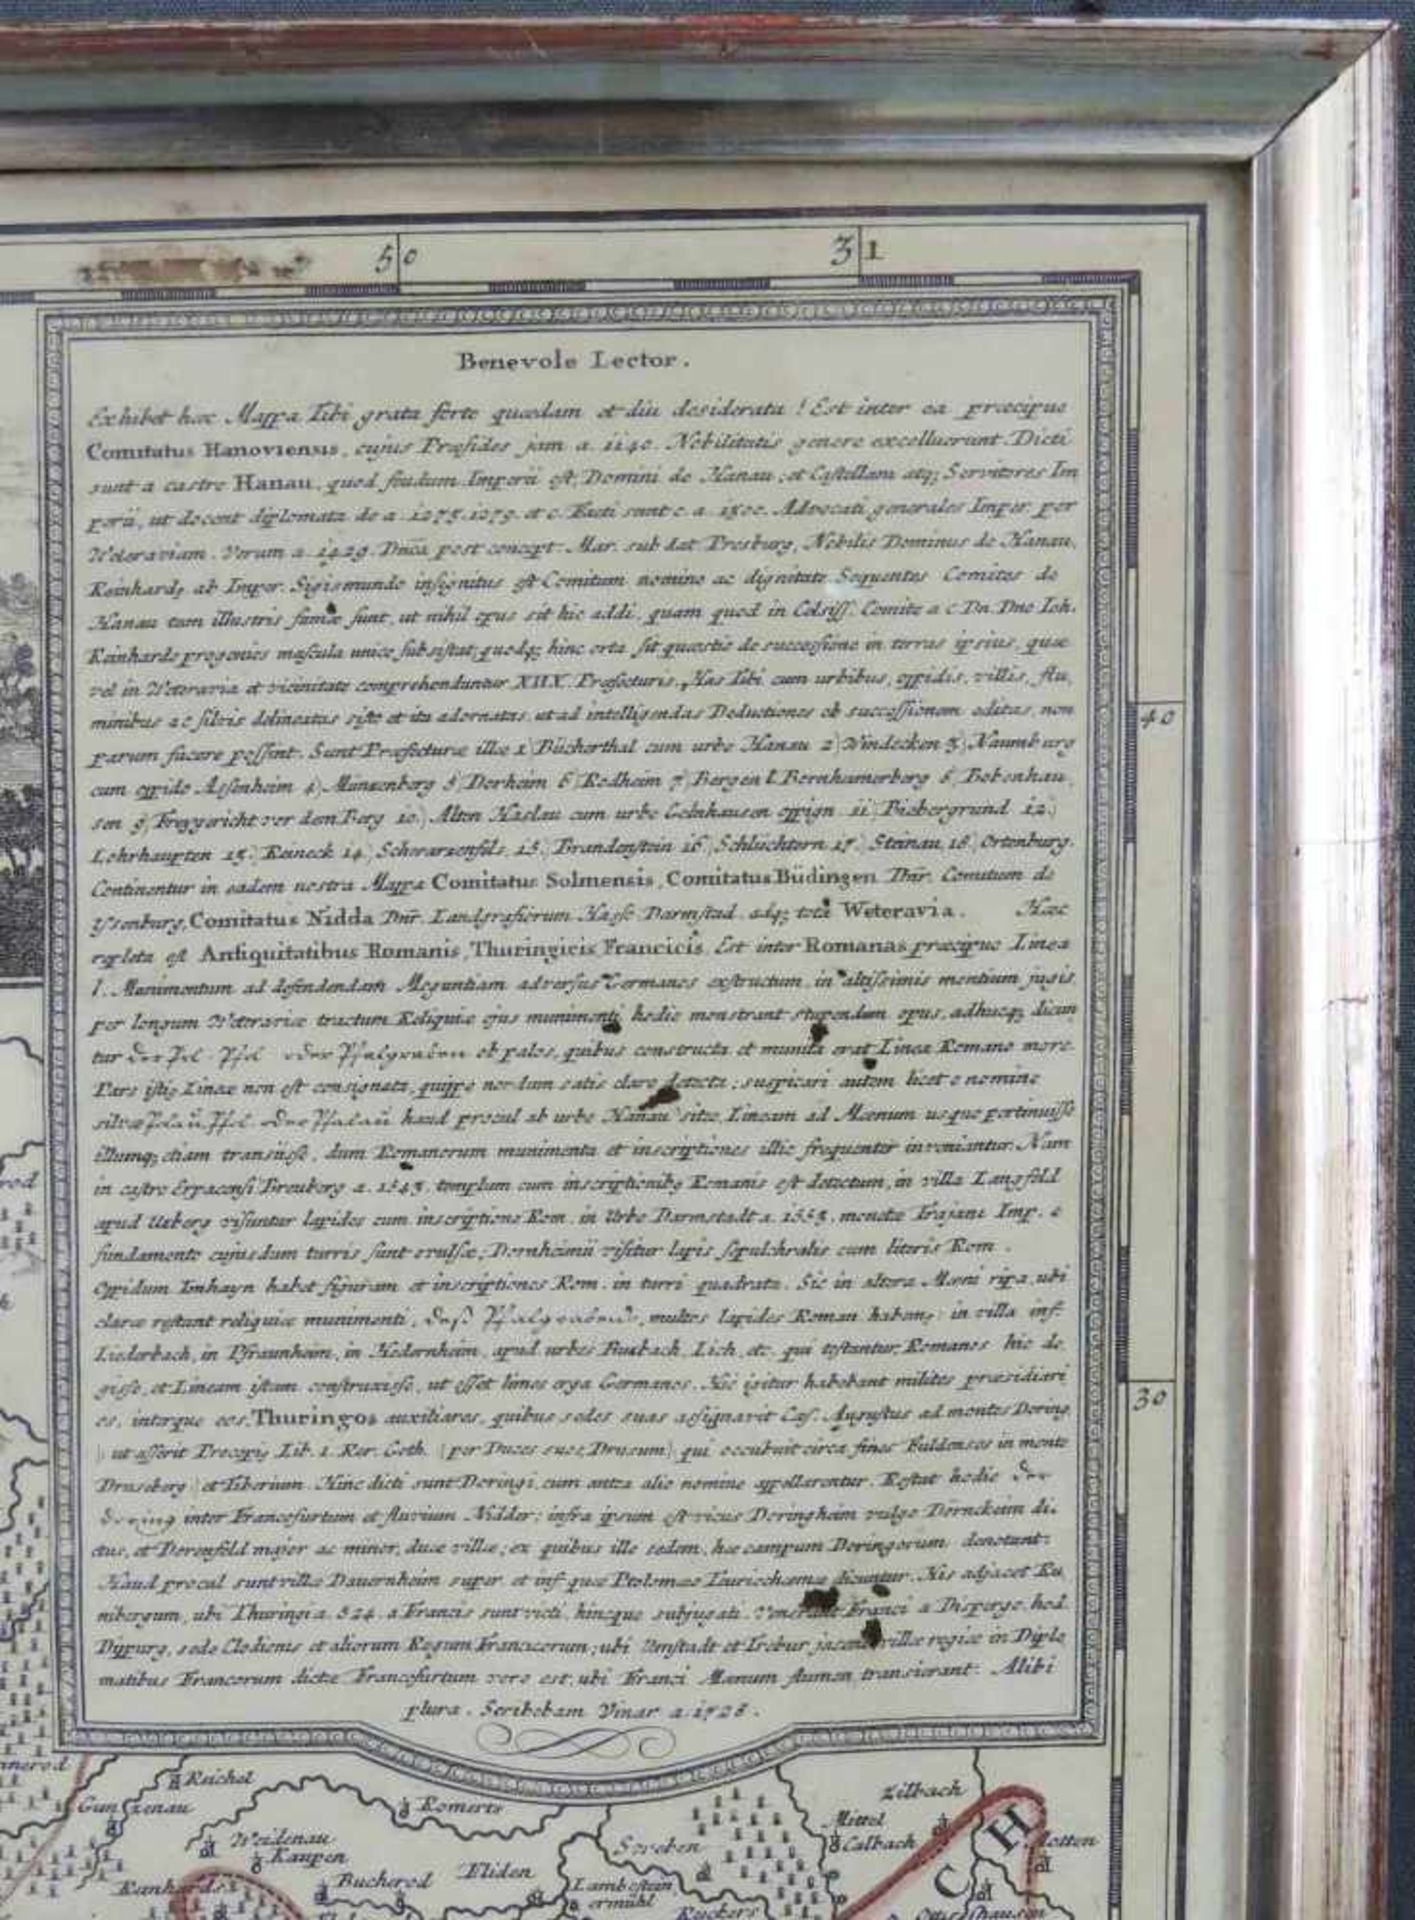 50
31
Benevole Lector.
Exhibet hæc Mappa Tibi grata forte quædam et diu desiderata! Est inter ea præcipue
Comitatus Hanoviensis, cujus Præsides jam a. 1140. Nobilitatis genere excelluerunt. Dicti
sunt a castro Hanau, quod feudum Imperii est, Domini de Hanau, et Castellani atq; Servitores Im
perii, ut docent diplomata de a. 1275. 1279. etc. Facti sunt c. a. 1500. Advocati generales Imper. per
Weteraviam. Verum a. 1429. Dnica post concept. Mar. sub dat. Presburg, Nobilis Dominus de Hanau,
Reinhardg ab Imper. Sigismundo insignitus est Comitum nomine ac dignitate. Sequentes Comites de
Hanau tam illustris famæ sunt, ut nihil opus sit hic addi, quam quod in Celsiss. Comite a c Dn. Dno Ioh.
Reinhardo progenies mascula unice subsistat, quodq; hinc orta sit quæstio de successione in terras ipsius, quæ
vel in Weteravia et vicinitate comprehenduntur XIIX. Præfecturis. Has Tibi cum urbibus, oppidis, villis, flu,
minibus ac silvis delineatas sisto et ita adornatas, ut ad intelligendas Deductiones ob successionem editas, non
parum facere possint. Sunt Præfecturæ illæ 1) Bücherthal cum urbe Hanau 2) Windecken 3) Naumburg
cum oppido Assenheim 4) Münzenberg 5) Dorheim 6) Rodheim 7) Bergen l. Bornheimerberg 8) Bobenhau,
sen 9) Freygericht vor dem Berg 10.) Alten Haslau cum urbe Gelnhausen oppign. 11) Biebergrund 12.)
Lohrhaupten 13.) Reineck 14.) Schwarzenfels, 15.) Brandenstein 16) Schlüchtern 17.) Steinau, 18) Ortenburg.
Continentur in eadem nostra Mappa Comitatus Solmensis, Comitatus Büdingen Dnr. Comitum de
Ysenburg, Comitatus Nidda Dnr. Landgrafiorum Hass. Darmstad. adq; tota Weteravia. Hæc
repleta est Antiquitatibus Romanis, Thuringicis Francicis. Est inter Romanas præcipue Linea
l. Munimentum ad defendendam Moguntiam adversus Germanos exstructum, in altissimis montium jugis
per longum Weteraviæ tractum. Reliquiæ ejus munimenti hodie monstrant stupendum opus, adhucq; dicun
tur der Pol. Pfol oder Pfalgraben ob palos, quibus constructa et munita erat Linea Romano more.
Pars istig Lineæ non est consignata, quippe nondum satis clare detecta; suspicari autem licet e nomine
silvæ haud procul ab urbe Hanau sitæ, Lineam ad Moenum usque pertinuisse
illumq; etiam transiisse, dum Romanorum munimenta et inscriptiones illic frequenter inveniantur. Nam
in castro Erpacensi Breuberg a. 1543. templum cum inscriptionibg Romanis est detectum, in villa Langfeld
apud Uzberg visuntur lapides cum inscriptione Rom. in Urbe Darmstadt a. monetæ Trajani Imp. e
fundamento cujusdam turris sunt evulsæ; Dornheimii visitur lapis sepulchralis cum literis Rom.
Oppidum Imhayn habet figuram et inscriptiones Rom. in turri quadrata. Sic in altera Moeni ripa, ubi
claræ restant reliquiæ munimenti, deß Pfalgrabens, multos lapides Roman habemg: in villa inf.
Liederbach, in Pfraunheim, in Hedernheim, apud urbes Buzbach, Lich, etc. qui testantur, Romanos hic de,
gisse, et Lineam istam construxisse, ut esset limes erga Germanos. Hic igitur habebant milites præsidiari
os, interque eos, Thuringos auxiliares, quibus sedes suas assignavit Cæs. Augustus ad montes Doring.
(ut asserit Procopig Lib. 1. Rer. Goth. (per Duces suos, Drusum) qui occubuit circa fines Fuldenses in monte
Druseberg) et Tiberium. Hinc dicti sunt Doringi, cum antea alio nomine appellarentur. Restat hodie der
Dering inter Francofurtum et fluvium Nidder; infra ipsum est vicus Deringheim vulgo Dörnckeim di,
ctus, et Dorenfeld major ac minor, duæ villæ; ex quibus ille sedem, hæ campum Doringorum denotant:
Haud procul sunt villæ Dauernheim super. et inf. quæ Ptolomæo dicuntur. His adjacet Ru
nibergum, ubi Thuringi a. 524. a Francis sunt victi, hincque subjugati. Venerunt Franci a Dispargo, hod.
Dipurg, sede Clodionis et aliorum Regum Francicorum; ubi Umstadt et Trebur jacent villæ regiæ in Diplo
matibus Francorum dictæ. Francofurtum vero est, ubi Franci Mœnum flumen transierant. Alibi
plura. Scribebam Vinar. a. 1728.
40
30
Reichel
Guntzenau
Romerts
Weidenau
Kaupen
Bucherod
Fliden
Soroben
Lambestein
ermühl
Ruckers
Mittel
Calbach
Zilbach
Motten
CH